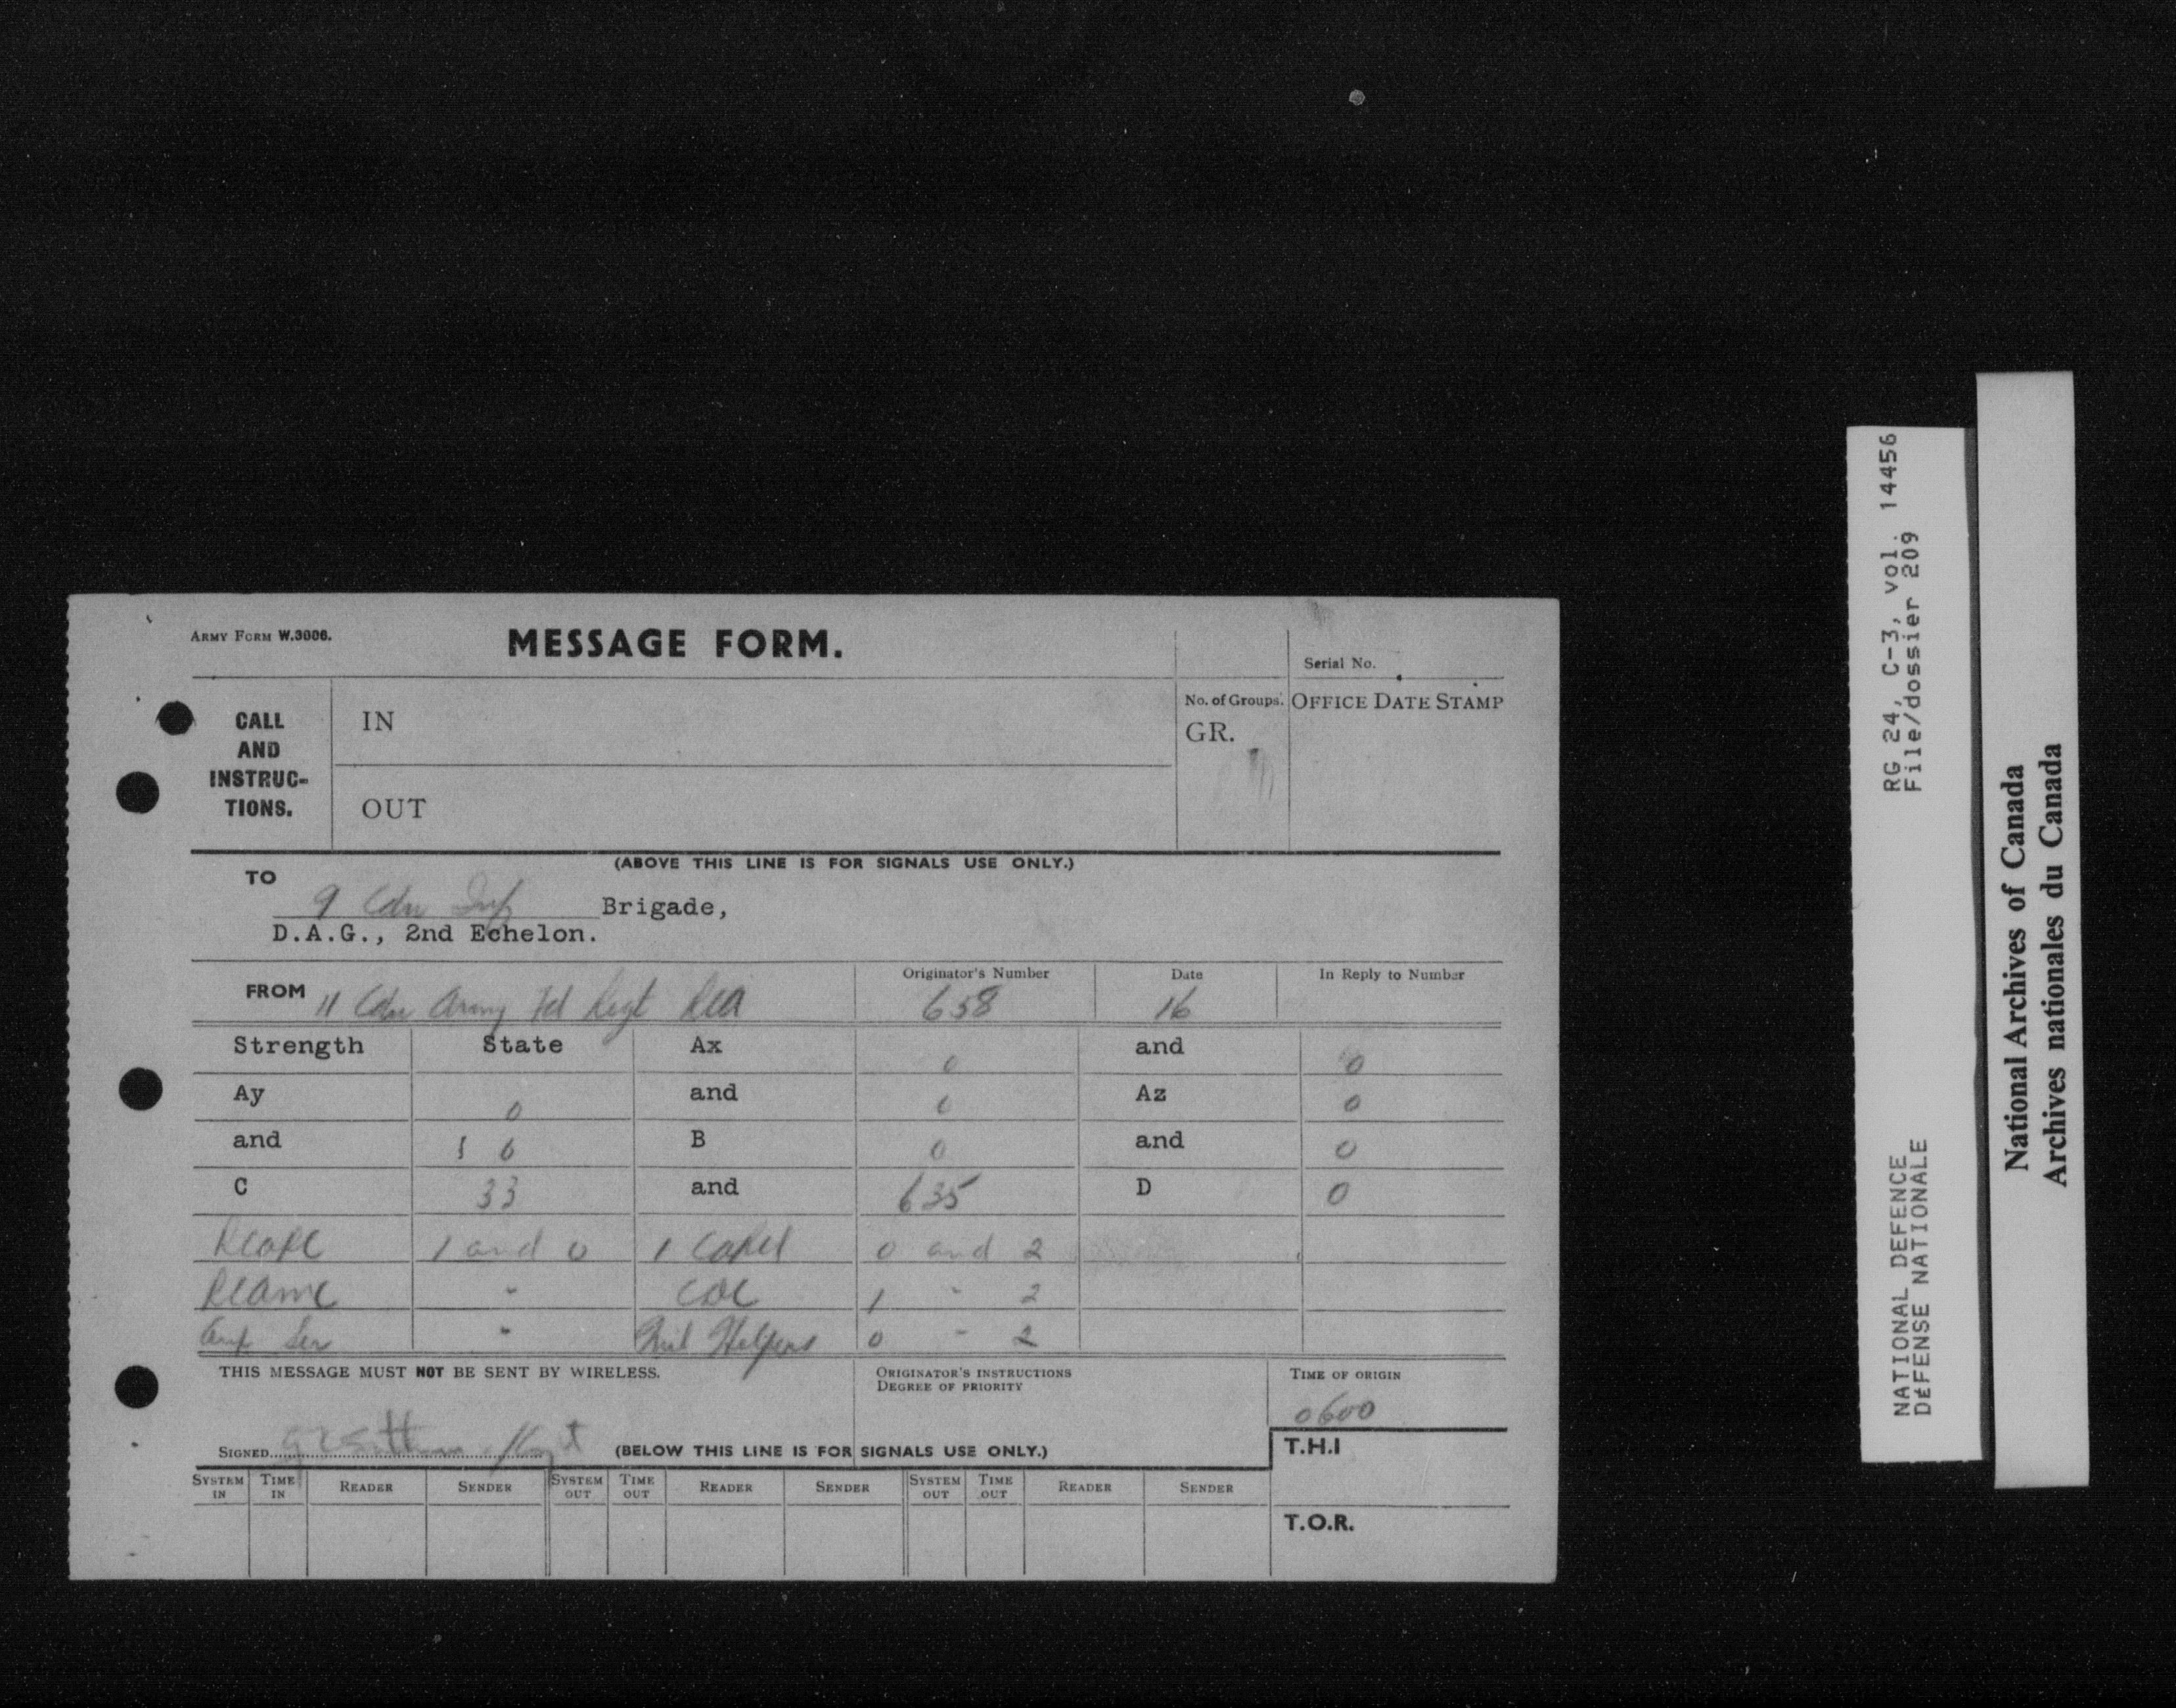 ARMY FORM W.3006.
MESSAGE FORM.
Serial No.
CALL AND INSTRUC-TIONS.
IN
No. of Groups.
GR.
OFFICE DATE STAMP
OUT
(ABOVE THIS LINE IS FOR SIGNALS USE ONLY.)
TO
9 Cdn Inf Brigade,
D.A.G., 2nd Echelon.
FROM 11 Cdn Army Fd Regt RCA
Originator's Number 658
Date 16
In Reply to Number
Strength State Ax 0 and 0
Ay 0 and 0 Az 0
and 16 B 0 and 0
C 33 and 635 D 0
1 and 0 0 and 2
RCAMC " CDC 1 " 2
" Helpers 0 " 2
THIS MESSAGE MUST NOT BE SENT BY WIRELESS.
ORIGINATOR'S INSTRUCTIONS
DEGREE OF PRIORITY
TIME OF ORIGIN
0600
SIGNED
(BELOW THIS LINE IS FOR SIGNALS USE ONLY.)
T.H.I
SYSTEM IN TIME IN READER SENDER SYSTEM OUT TIME OUT READER SENDER SYSTEM OUT TIME OUT READER SENDER
T.O.R.
RG 24, C-3, vol. 14456
File/dossier 209
NATIONAL DEFENCE
DÉFENSE NATIONALE
National Archives of Canada
Archives nationales du Canada